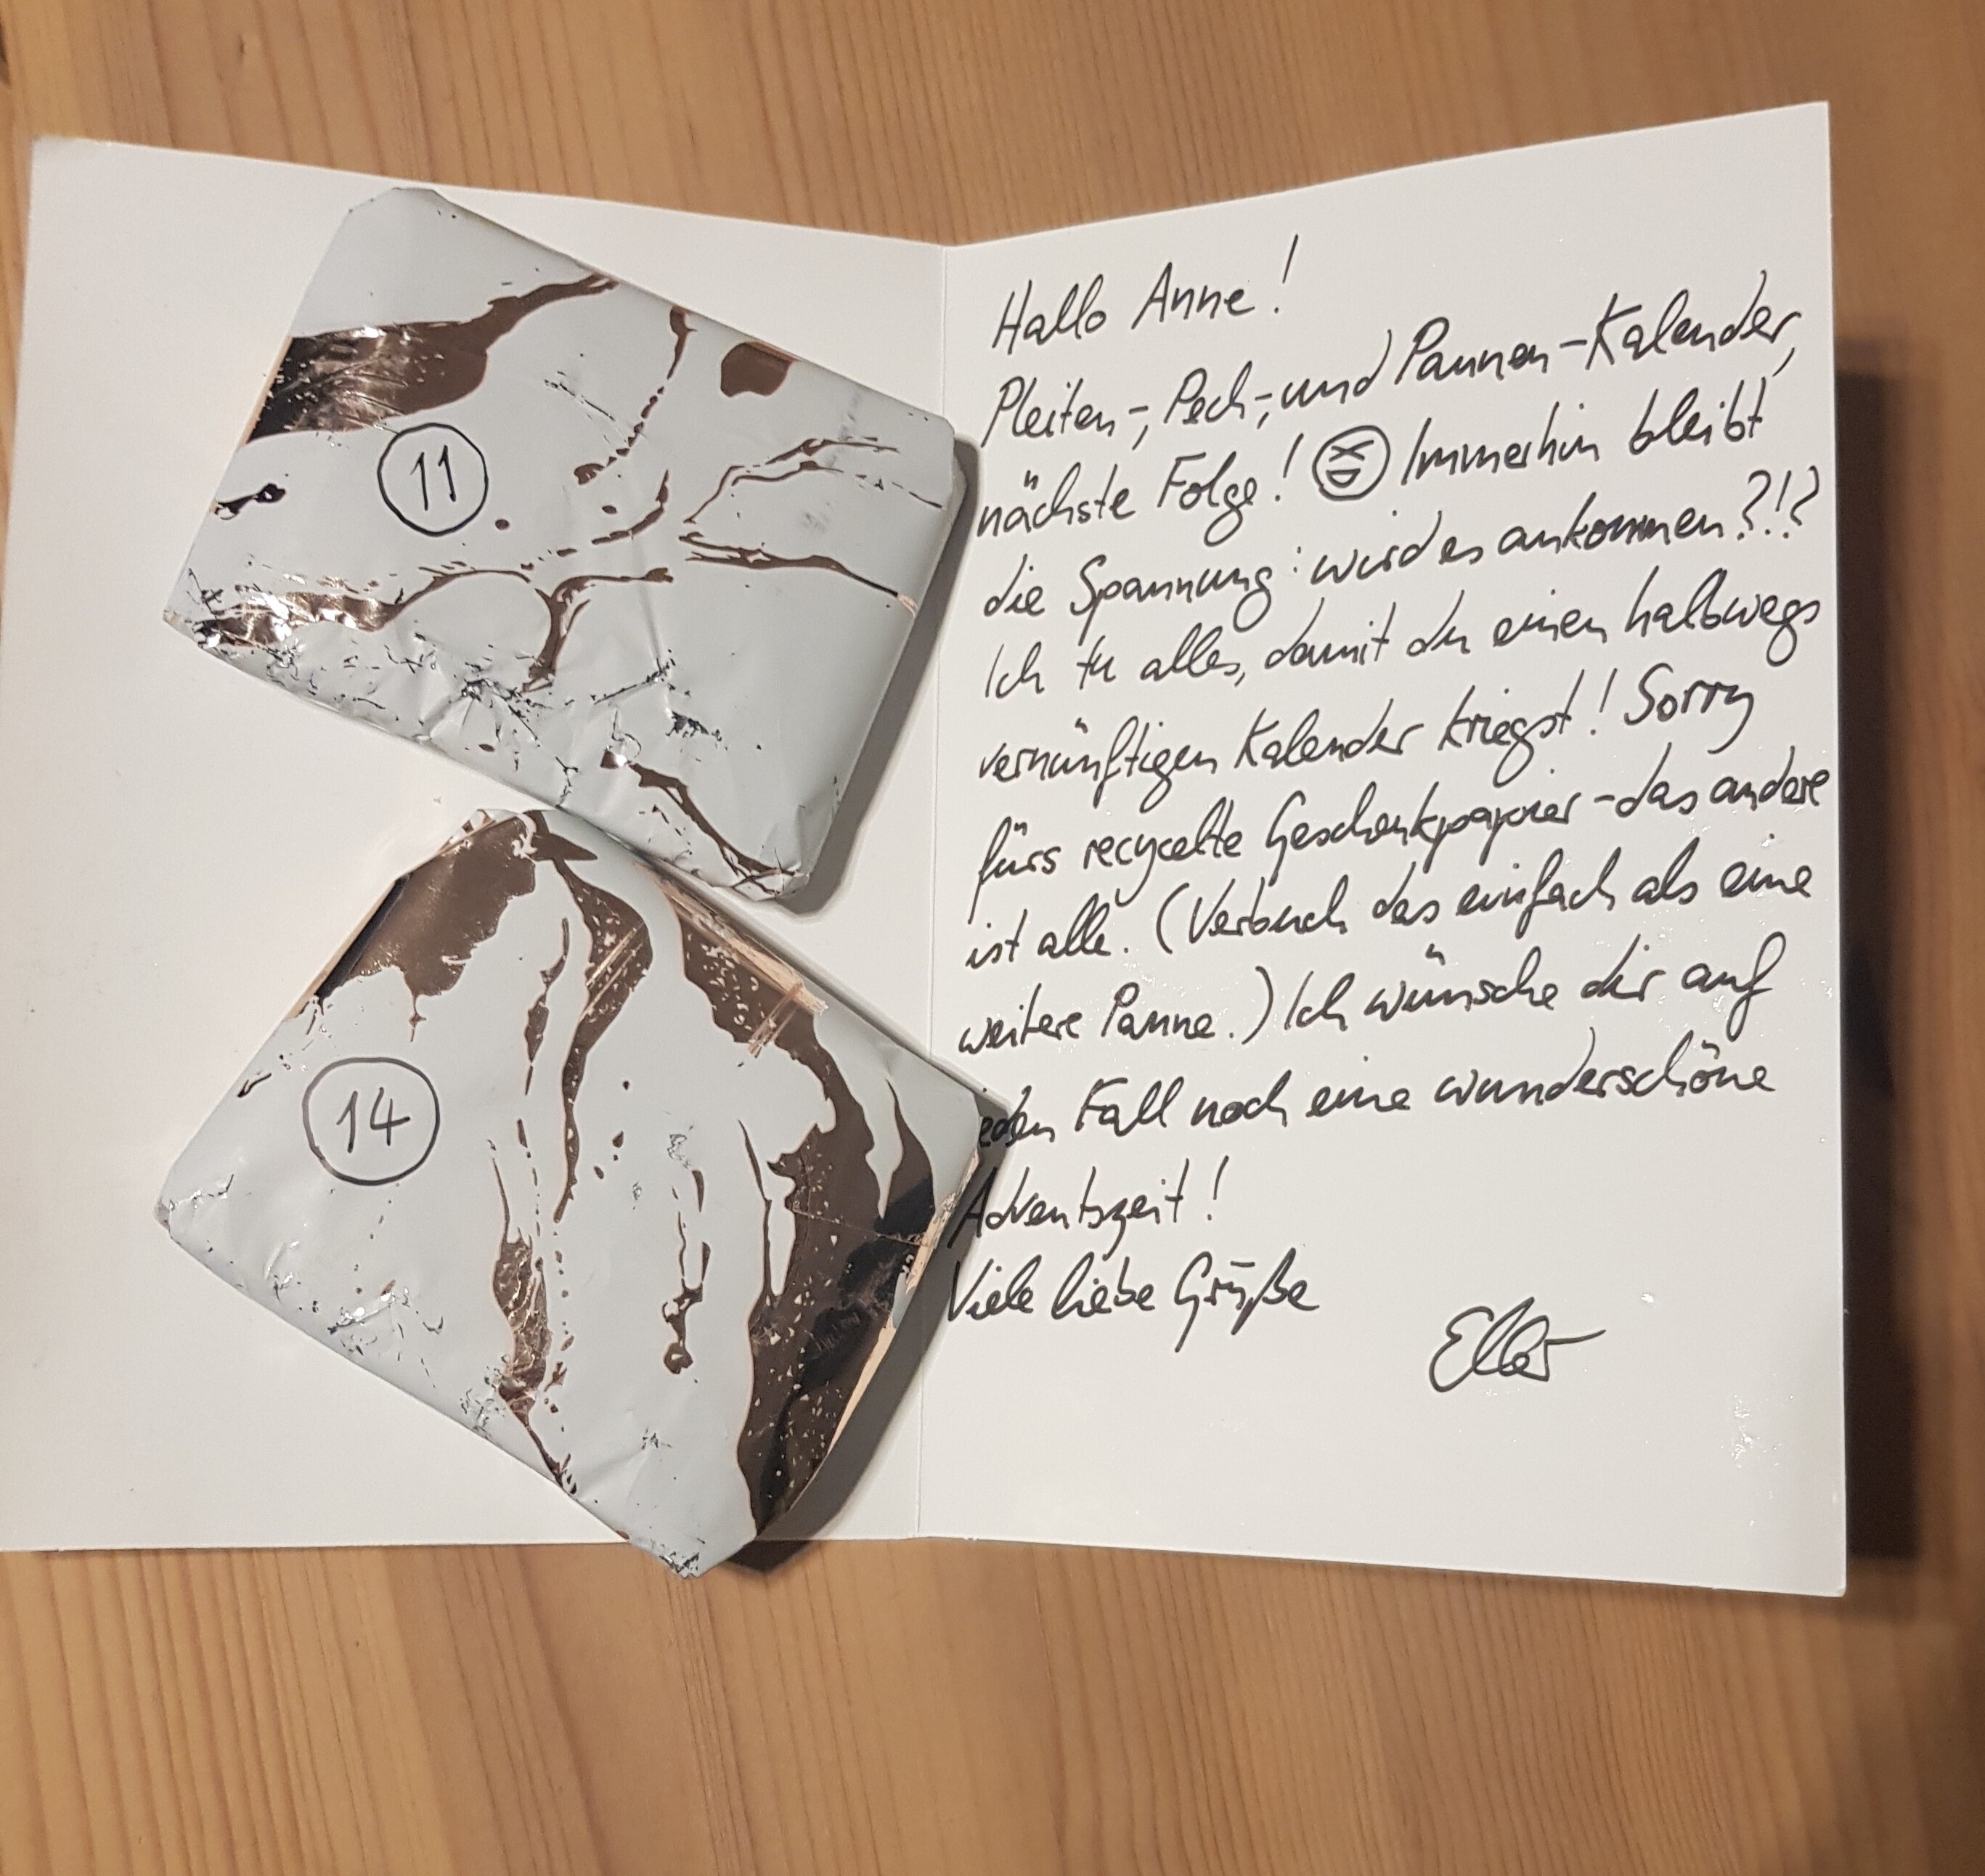 11
14
Hallo Anne!
Pleiten-, Pech-, und Pannen-Kalender,
nächste Folge! Immerhin bleibt
die Spannung: wird es ankommen?!?
Ich tu alles, damit du einen halbwegs
vernünftigen Kalender kriegst! Sorry
fürs recycelte Geschenkpapier - das andere
ist alle. (Verbuch das einfach als eine
weitere Panne.) Ich wünsche dir auf
jeden Fall noch eine wunderschöne
Adventszeit!
Viele liebe Grüße